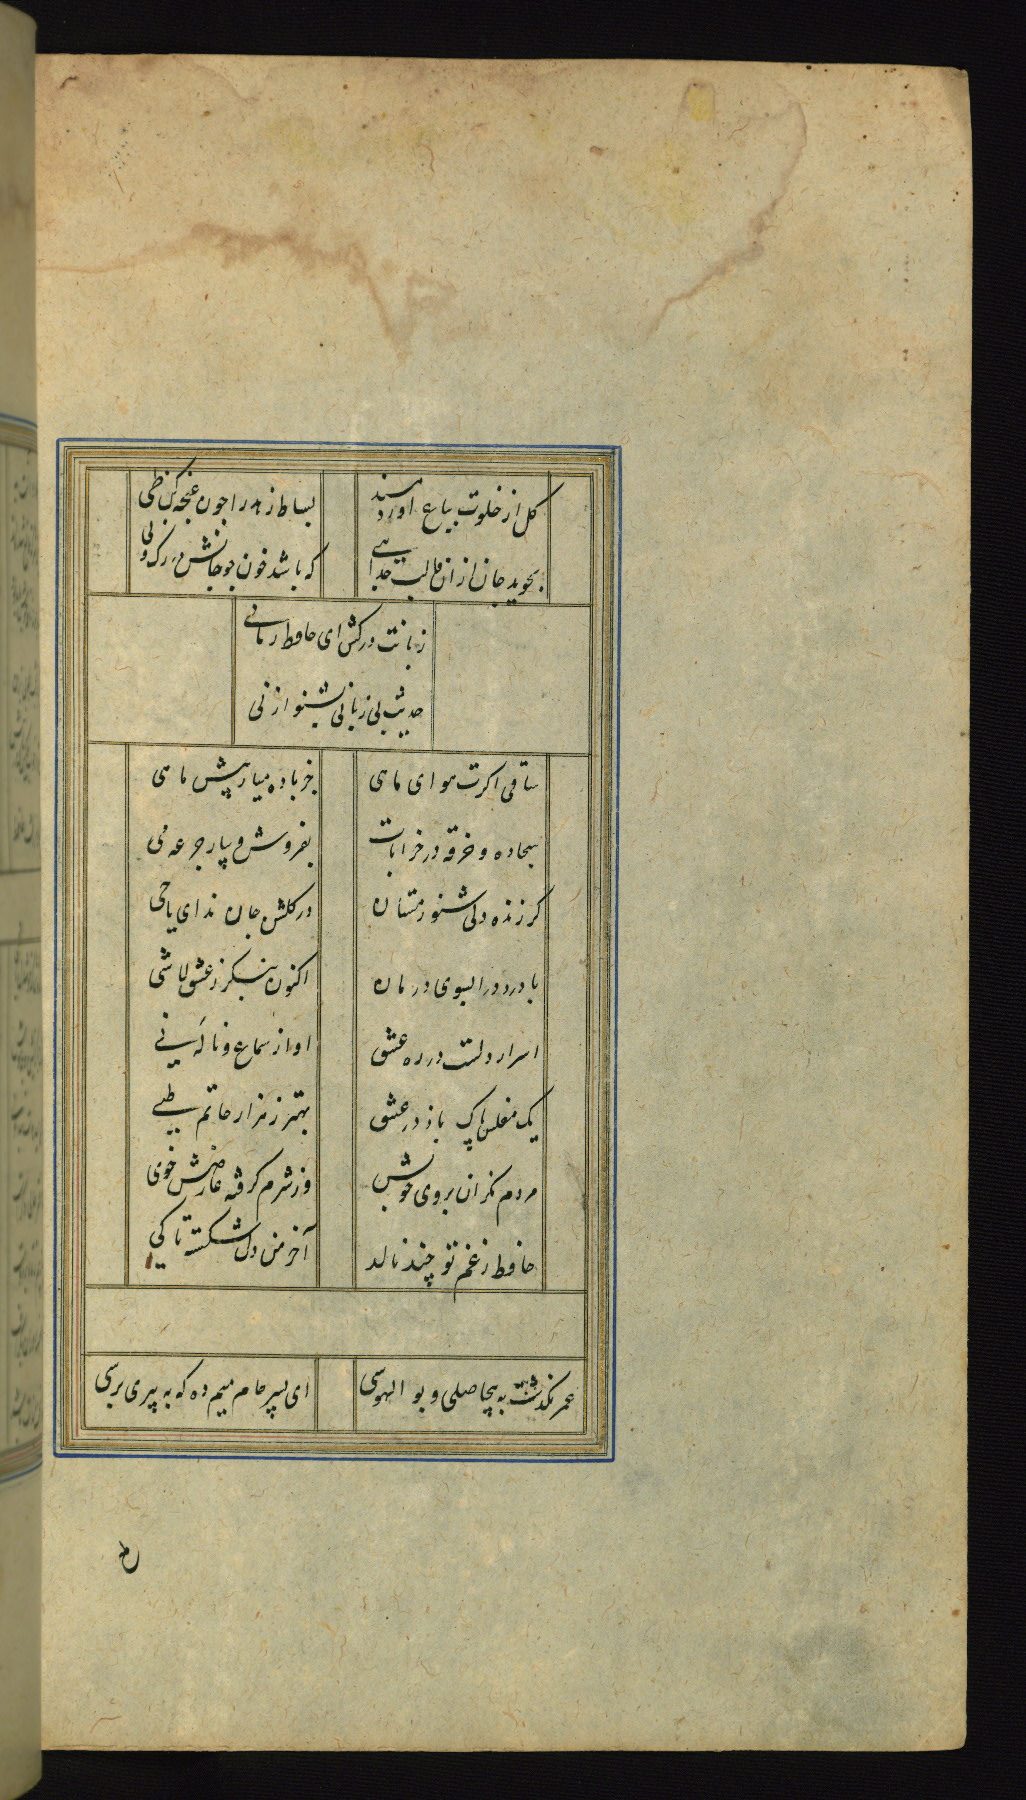 کل از خلوت بباغ اورد مسند بساط زهد را چون غنچه کن طی
بجوید جان ازان قالب جدایی که باشد خون جوجانش در رک و پی
زبانت درکش ای حافظ زمانی
حدیث بی زبانی بشنو از نی
ساقی اکرت هوای ما هی جز باده میار پیش ما هی
سجاده و خرقه در خرابات بفروش و بیار جرعه می
کر زنده دلی شنو ز مستان در کلشن جان ندای یا حی
با درد درا بسوی درمان اکنون بنکر ز عشق لاشی
اسرار دلست در ره عشق اواز سماع و ناله نی
یک مفلس پاک باز در عشق بهتر ز هزار حاتم طی
مردم نکران بروی خوبش وز شرم کرفته عارضش خوی
حافظ ز غم تو چند نالد آخر من دل شکسته تا کی
عمر بکذشت به بیحاصلی و بو الهوسی ای پسر جام میم ده که به پیری برسی